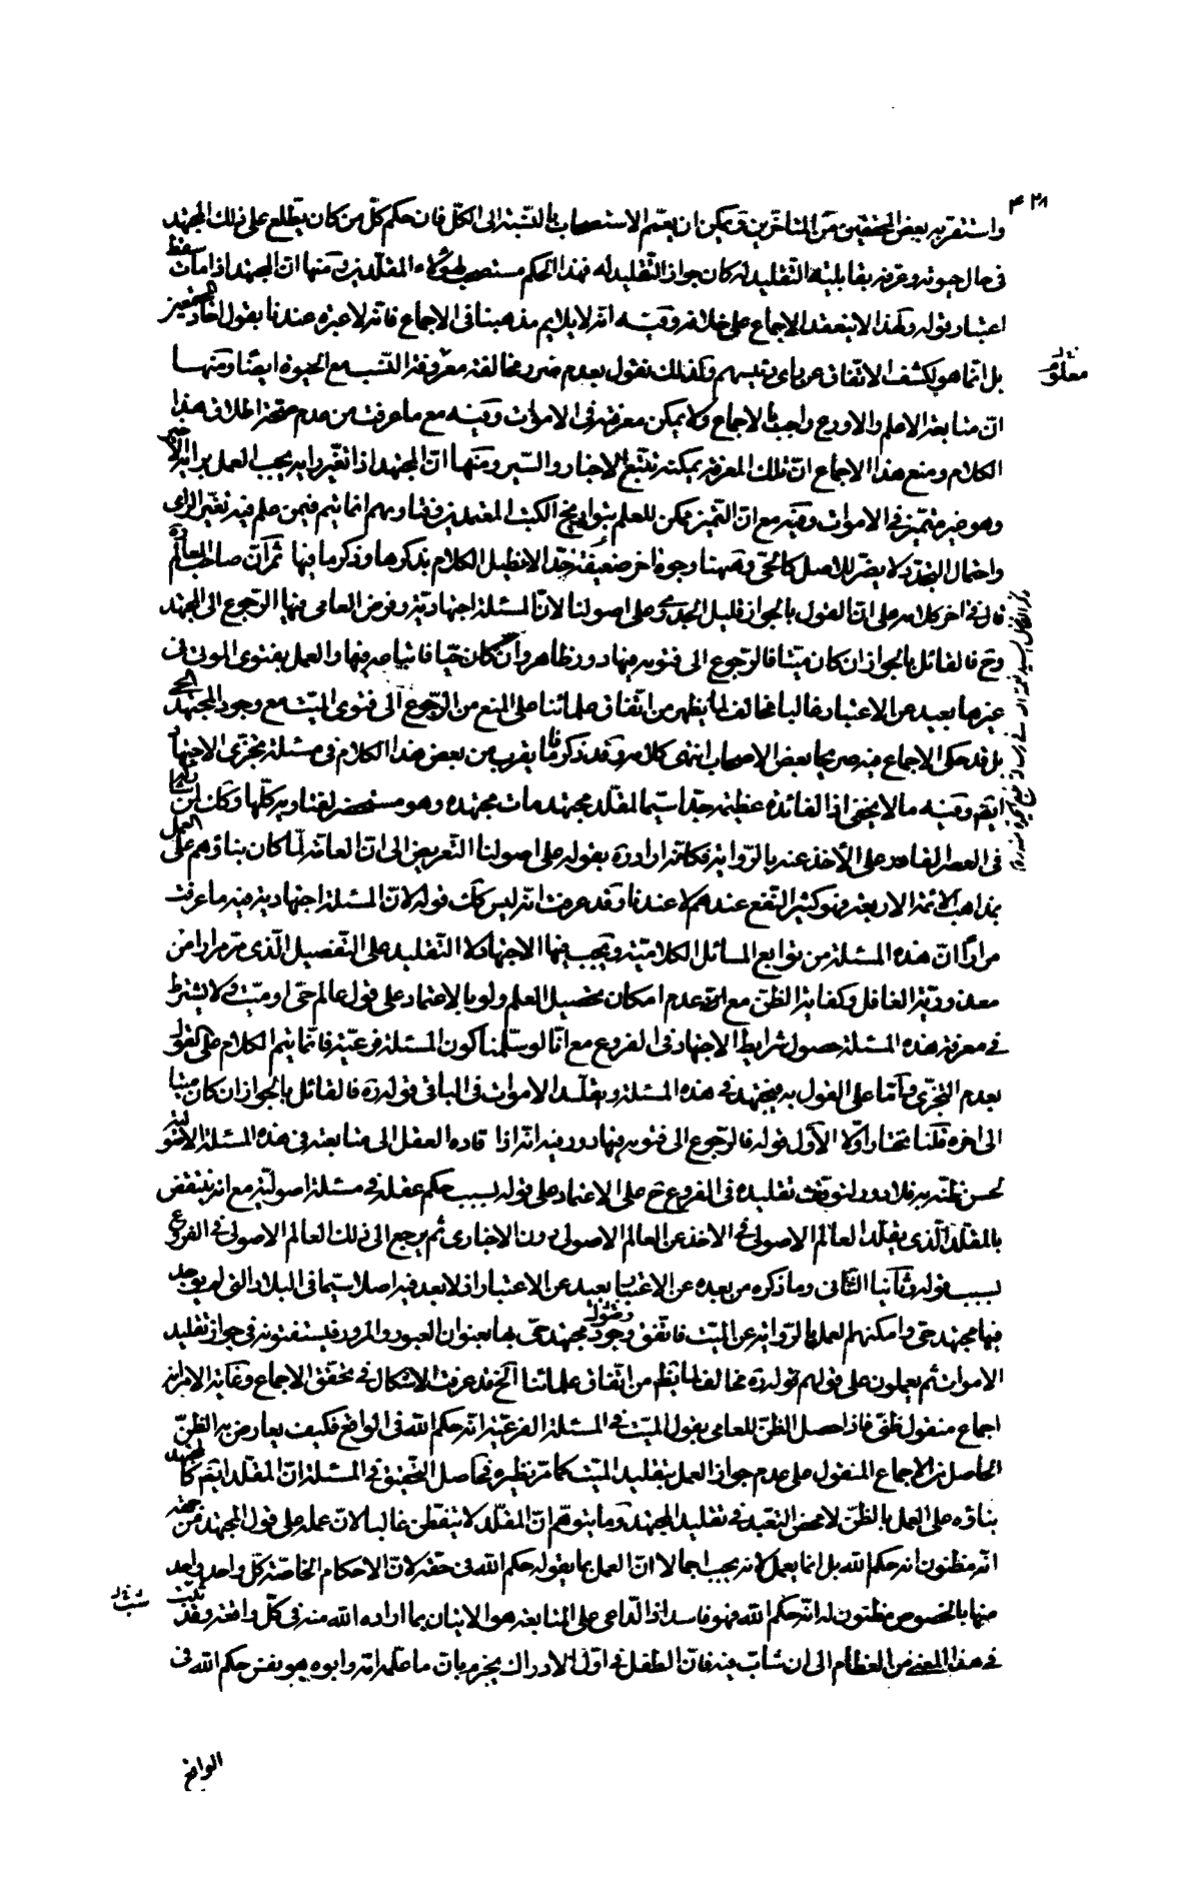 ٤٢٨
واستقر به بعض المحققين من المتأخرين ويمكن ان يعمم الاستصحاب بالنسبة الى الكل فان حكم كل من كان يطلع على ذلك المجتهد
فى حال حيوته وعرفه بقابليته التقليد له كان جواز التقليد له فهذا الحكم مستصحب لهؤلاء المقلدين ومنها ان المجتهد اذا مات سقط
اعتبار قوله ولهذا لا ينعقد الاجماع على خلافه وفيه انه لا يلايم مذهبنا فى الاجماع فانه لا عبرة عندنا بقول احاد المجمعين
بل انما هو لكشف الاتفاق عن راى رئيسهم ولذلك نقول بعدم ضرر مخالفة معروف النسب مع الحيوة ايضا ومنها
معلوم
ان متابعة الاعلم والاورع واجب بالاجماع ولا يمكن معرفته فى الاموات وفيه مع ما عرفت من عدم صحة اطلاق هذا
الكلام ومنع هذا الاجماع ان تلك المعرفة يمكنه تتبع الاخبار والسير ومنها ان المجتهد اذا تغير رايه يجب العمل برايه الاخير
وهو غير متميز فى الاموات وفيه مع ان التميز يمكن للعلم بتواريخ الكتب المعتمدين وفتاويهم انما يتم فيمن علم فيه تغير الراى
واحتمال التجدد لا يضر للاصل كالحى وههنا وجوه اخر ضعيفة جدا لا نطيل الكلام بذكرها وذكر ما فيها ثم ان صاحب المعالم ره
قال فى اخر كلامه على ان القول بالجواز قليل الجدوى على اصولنا لان المسئلة اجتهادية وفرض العامى فيها الرجوع الى المجتهد
وح فالقائل بالجواز ان كان ميتا فالرجوع الى فتويه فيها دور ظاهر وان كان حيا فاتباعه فيها والعمل بفتوى الموتى فى
غيرها بعيد عن الاعتبار غالبا مخالف لما يظهر من اتفاق علمائنا على المنع من الرجوع الى فتوى الميت مع وجود المجتهد الحى
بل قد حكى الاجماع فيه صريحا بعض الاصحاب انتهى كلامه وقد ذكر ما يقرب من بعض هذا الكلام فى مسئلة تجزى الاجتهاد
ايضا وفيه ما لا يخفى اذ الفائدة عظيمة جدا سيما لمقلد مجتهد مات مجتهده وهو مستحضر لفتاويه كلها وكان
فى العصر القاصر على الاخذ عنه بالرواية فكانه اراد ره بقوله على اصولنا التعريض الى ان العامة لما كان بناؤهم على العمل
بمذاهب الائمة الاربعة فهو كثير النفع عندهم لا عندنا وقد عرفت انه ليس كك قوله لان المسئلة اجتهادية فيه ما عرفت
مرارا ان هذه المسئلة من توابع المسائل الكلامية ويجب فيها الاجتهاد لا التقليد على التفصيل الذى مر مرارا من
معذورية الغافل وكفاية الظن مع عدم امكان تحصيل العلم ولو بالاعتماد على قول عالم حى او ميت ولا يشترط
فى معرفة هذه المسئلة حصول شرايط الاجتهاد فى الفروع مع انا لو سلمنا كون المسئلة فرعية فانما يتم الكلام على القول
بعدم التجزى واما على القول به فيجتهد فى هذه المسئلة ويقلد الاموات فى الباقى قوله ره فالقائل بالجواز ان كان ميتا
الى اخره قلنا نختار اولا الاول قوله فالرجوع الى فتويه فيها دور فيه انه اذا قاده العقل الى متابعته فى هذه المسئلة الاصولية
لحسن ظنه به فلا دور لتوقف تقليده فى الفروع ح على الاعتماد على قوله بسبب حكم عقله فى مسئلة اصولية مع انه ينتقض
بالمقلد الذى يقلد العالم الاصولى فى الاخذ عن العالم الاصولى دون الاخبارى ثم يرجع الى ذلك العالم الاصولى فى الفروع
بسبب قوله وثانيا الثانى وما ذكره من بعده عن الاعتبار بعيد عن الاعتبار اذ لا بعد فيه اصلا سيما فى البلاد التى لم يوجد
فيها مجتهد حى وامكنهم العمل بالرواية عن الميت فاتفق وجود مجتهد حى بها بعنوان العبور والمرور فليستفتونه فى جواز تقليد
الاموات ثم يعملون على قولهم قوله ره مخالف لما يظهر من اتفاق علمائنا الخ قد عرفت الاشكال فى تحقق الاجماع وغاية الامر انه
اجماع منقول ظنى فاذا حصل الظن للعامى بقول الميت فى المسئلة الفرعية انه حكم الله فى الواقع فكيف يعارض به الظن
الحاصل من الاجماع المنقول على عدم جواز العمل بتقليد الميت كما مر نظيره فحاصل التحقيق فى المسئلة ان المقلد ايضا كالمجتهد
بناؤه على العمل بالظن لا محض التعبد فى تقليد المجتهد وما يتوهم ان المقلد لا يتفطن غالبا لان عمله على قول المجتهد من جهة
انه مظنون انه حكم الله بل انما يعمل لانه يجب اجمالا ان العمل بما يقوله حكم الله فى حقه لان الاحكام الخاصة كل واحد واحد
منها بالخصوص مظنون له انه حكم الله فهو فاسد اذ الداعى على المتابعة هو الاتيان بما اراده الله منه فى كل واقعة وقد ثبت
فى هذا المعنى من الفطام الى ان شاب فيه فان الطفل فى اول الادراك يجزم بان ما علمه امه وابوه هو نفس حكم الله فى
الواقع